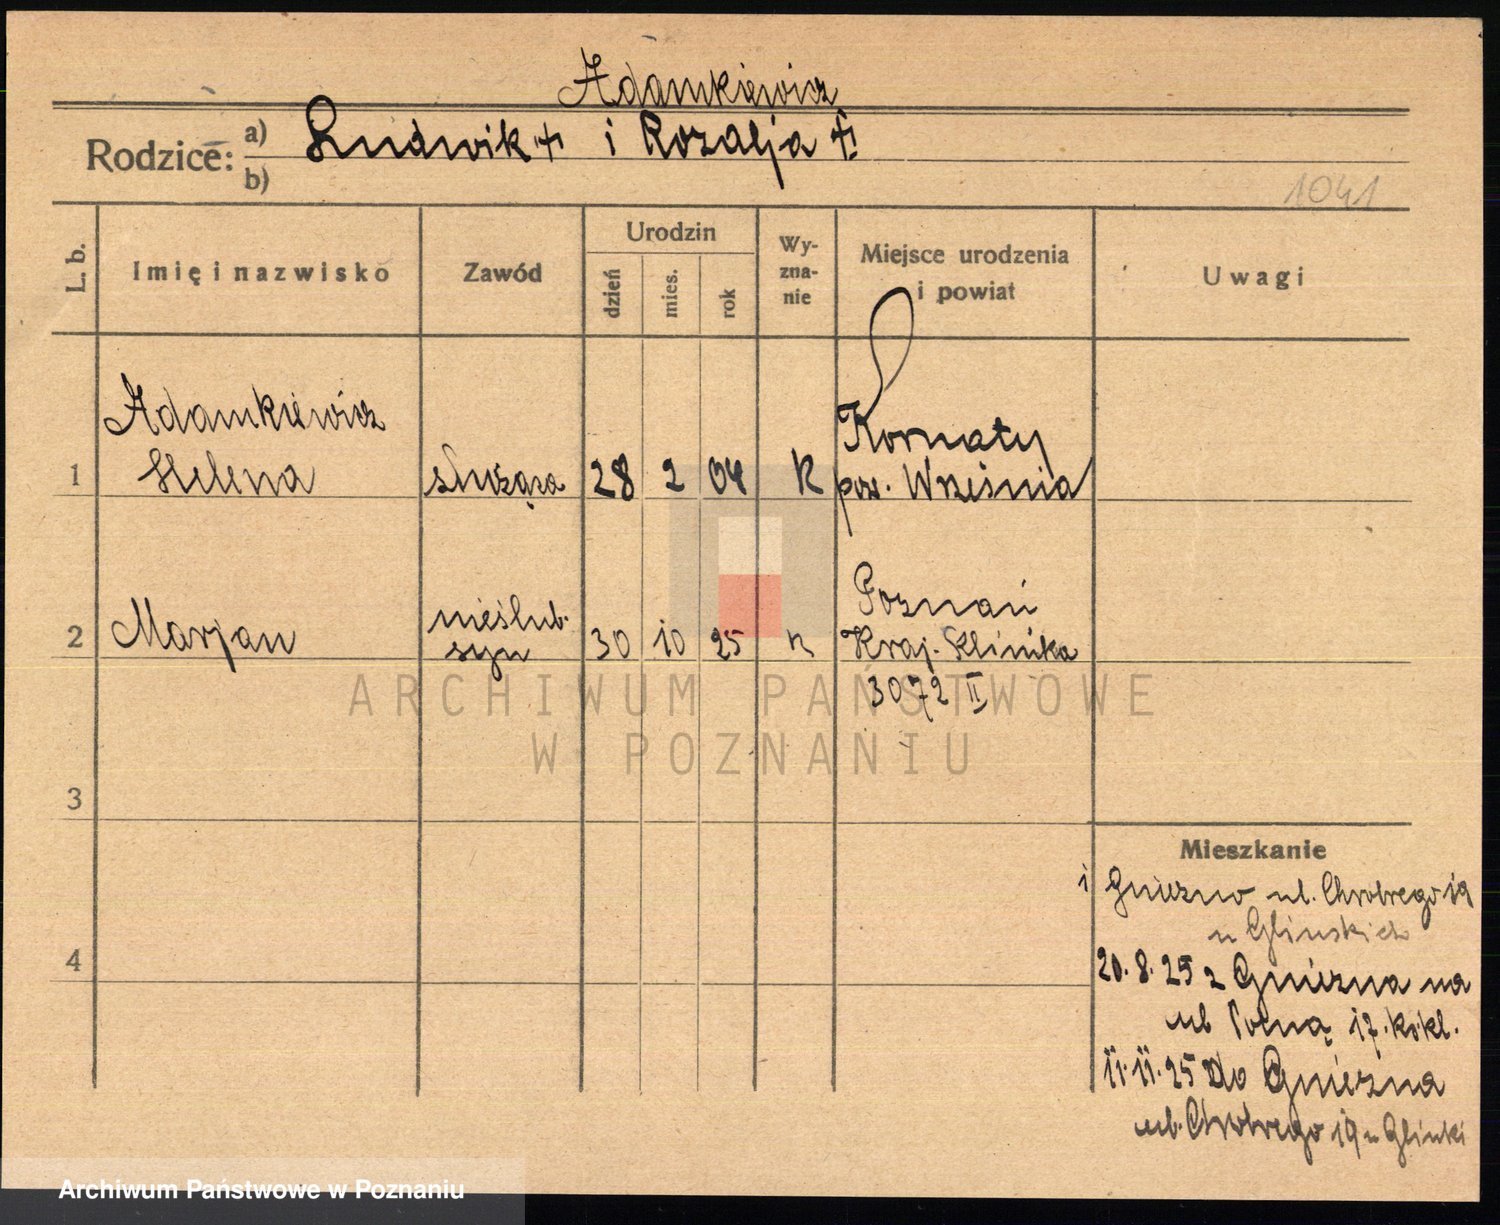 Adamkiewicz
Rodzice: a) Ludwik + i Rozalja +
b)
1041
L. b.
Imię i nazwisko
Zawód
Urodzin
dzień
mies.
rok
Wy-
zna-
nie
Miejsce urodzenia
i powiat
Uwagi
Adamkiewicz
1 Helena służąca 28 2 04 K Kornaty
pow. Września
2 Marjan nieślub. syn 30 10 25 K Poznań
Kraj. Klinika
3072 II
3
4
Mieszkanie
i Gniezno ul. Chrobrego 19
u Glinskich
20.8.25 z Gniezna na
ul Polną 17.
11.11.25 do Gniezna
ul. Chrobrego 19 u Glinki
ARCHIWUM PAŃSTWOWE
W POZNANIU
Archiwum Państwowe w Poznaniu